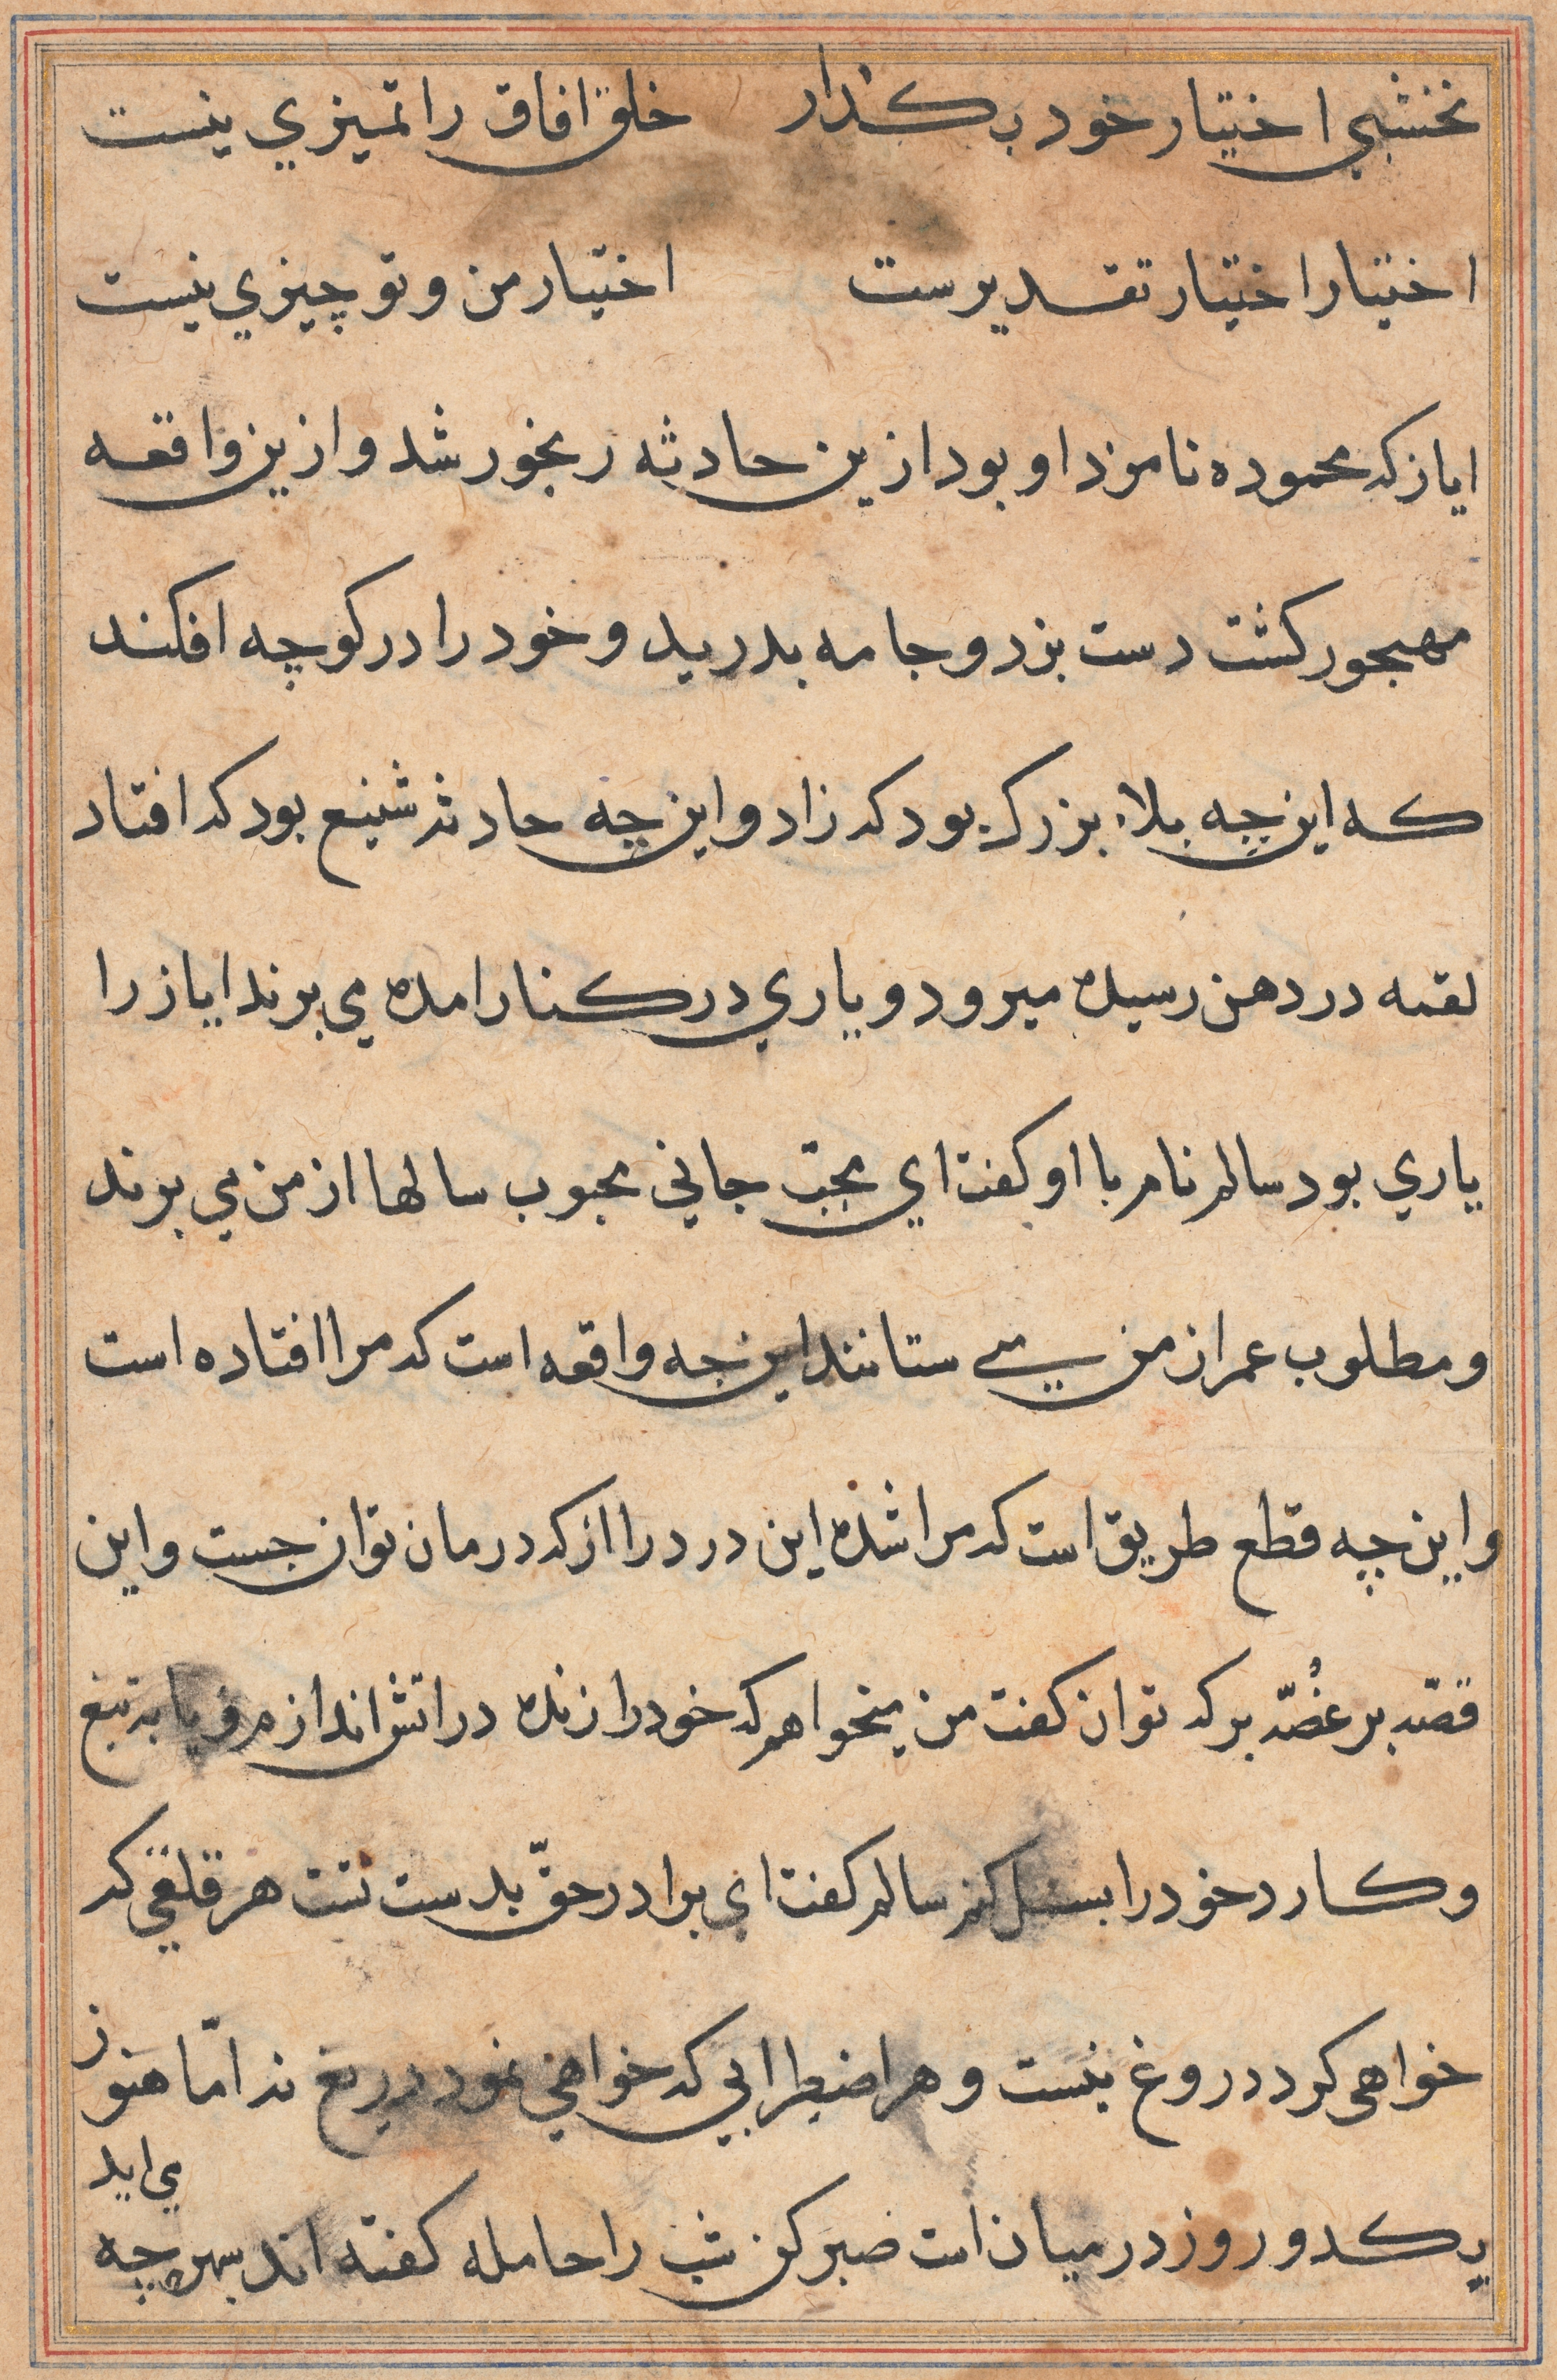 نخشبی اختیار خود بکذار خلق افاق را تمیزی نیست
اختیار اختیار تقدیرست اختیار من و تو چیزی نیست
ایاز که محموده نامزد او بود ازین حادثه رنجور شد و ازین واقعه
مهجور کشت دست بزد و جامه بدرید و خود را در کوچه افکند
که این چه بلاء بزرک بود که زاد و این چه حادثه شنیع بود که افتاد
لقمه در دهن رسیده میرود و یاری در کنار امده می برند ایاز را
یاری بود سالم نام با او کفت ای محبّ جانی محبوب سالها از من می برند
و مطلوب عمر از من می ستانند این چه واقعه است که مرا افتاده است
و این چه قطع طریق است که مرا شده این درد را از که درمان توان جست و این
قصّه بر غُصّه بر که توان کفت من میخواهم که خود را زنده در اتش اندازم و یا به تیغ
و کارد خود را بسمل کنم سالم کفت ای برادر حقّ بدست تست هر قلقی که
خواهی کرد دروغ نیست و هر اضطرابی که خواهی نمود دریغ نه امّا هنوز
یکدو روز در میان است صبر کن شب را حامله کفته اند بهر چه
می اید